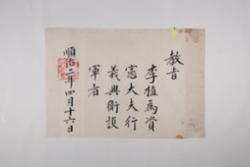 教旨
李植爲資
憲大夫行
義興衛護
軍者
順治二年四月十六日